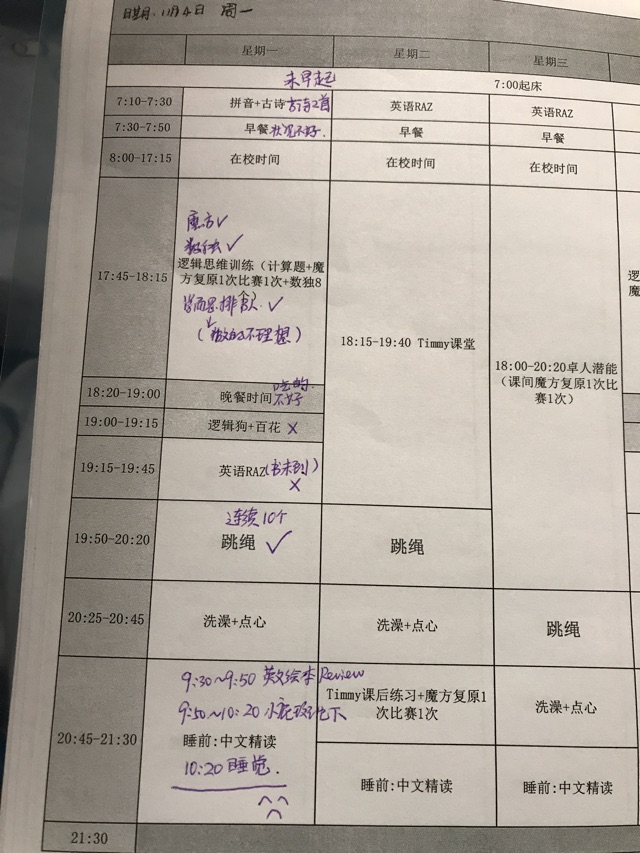 日期:11月4日 周一
星期一 星期二 星期三
未早起 7:00起床
7:10-7:30 拼音+古诗 古诗2首 英语RAZ 英语RAZ
7:30-7:50 早餐 状况不好. 早餐 早餐
8:00-17:15 在校时间 在校时间 在校时间
17:45-18:15
魔方✓
数独✓
逻辑思维训练（计算题+魔
方复原1次比赛1次+数独8
个）
✓
(做的不理想)
18:15-19:40 Timmy课堂
18:00-20:20卓人潜能
（课间魔方复原1次比
赛1次）
逻
魔
18:20-19:00 晚餐时间 吃的
不好
19:00-19:15 逻辑狗+百花 ×
19:15-19:45 英语RAZ(书未到)
×
连续10个
19:50-20:20 跳绳 ✓ 跳绳
20:25-20:45 洗澡+点心 洗澡+点心 跳绳
20:45-21:30
9:30~9:50 英文绘本Review
9:50~10:20
睡前:中文精读
10:20睡觉.
Timmy课后练习+魔方复原1
次比赛1次
洗澡+点心
睡前:中文精读 睡前:中文精读
21:30